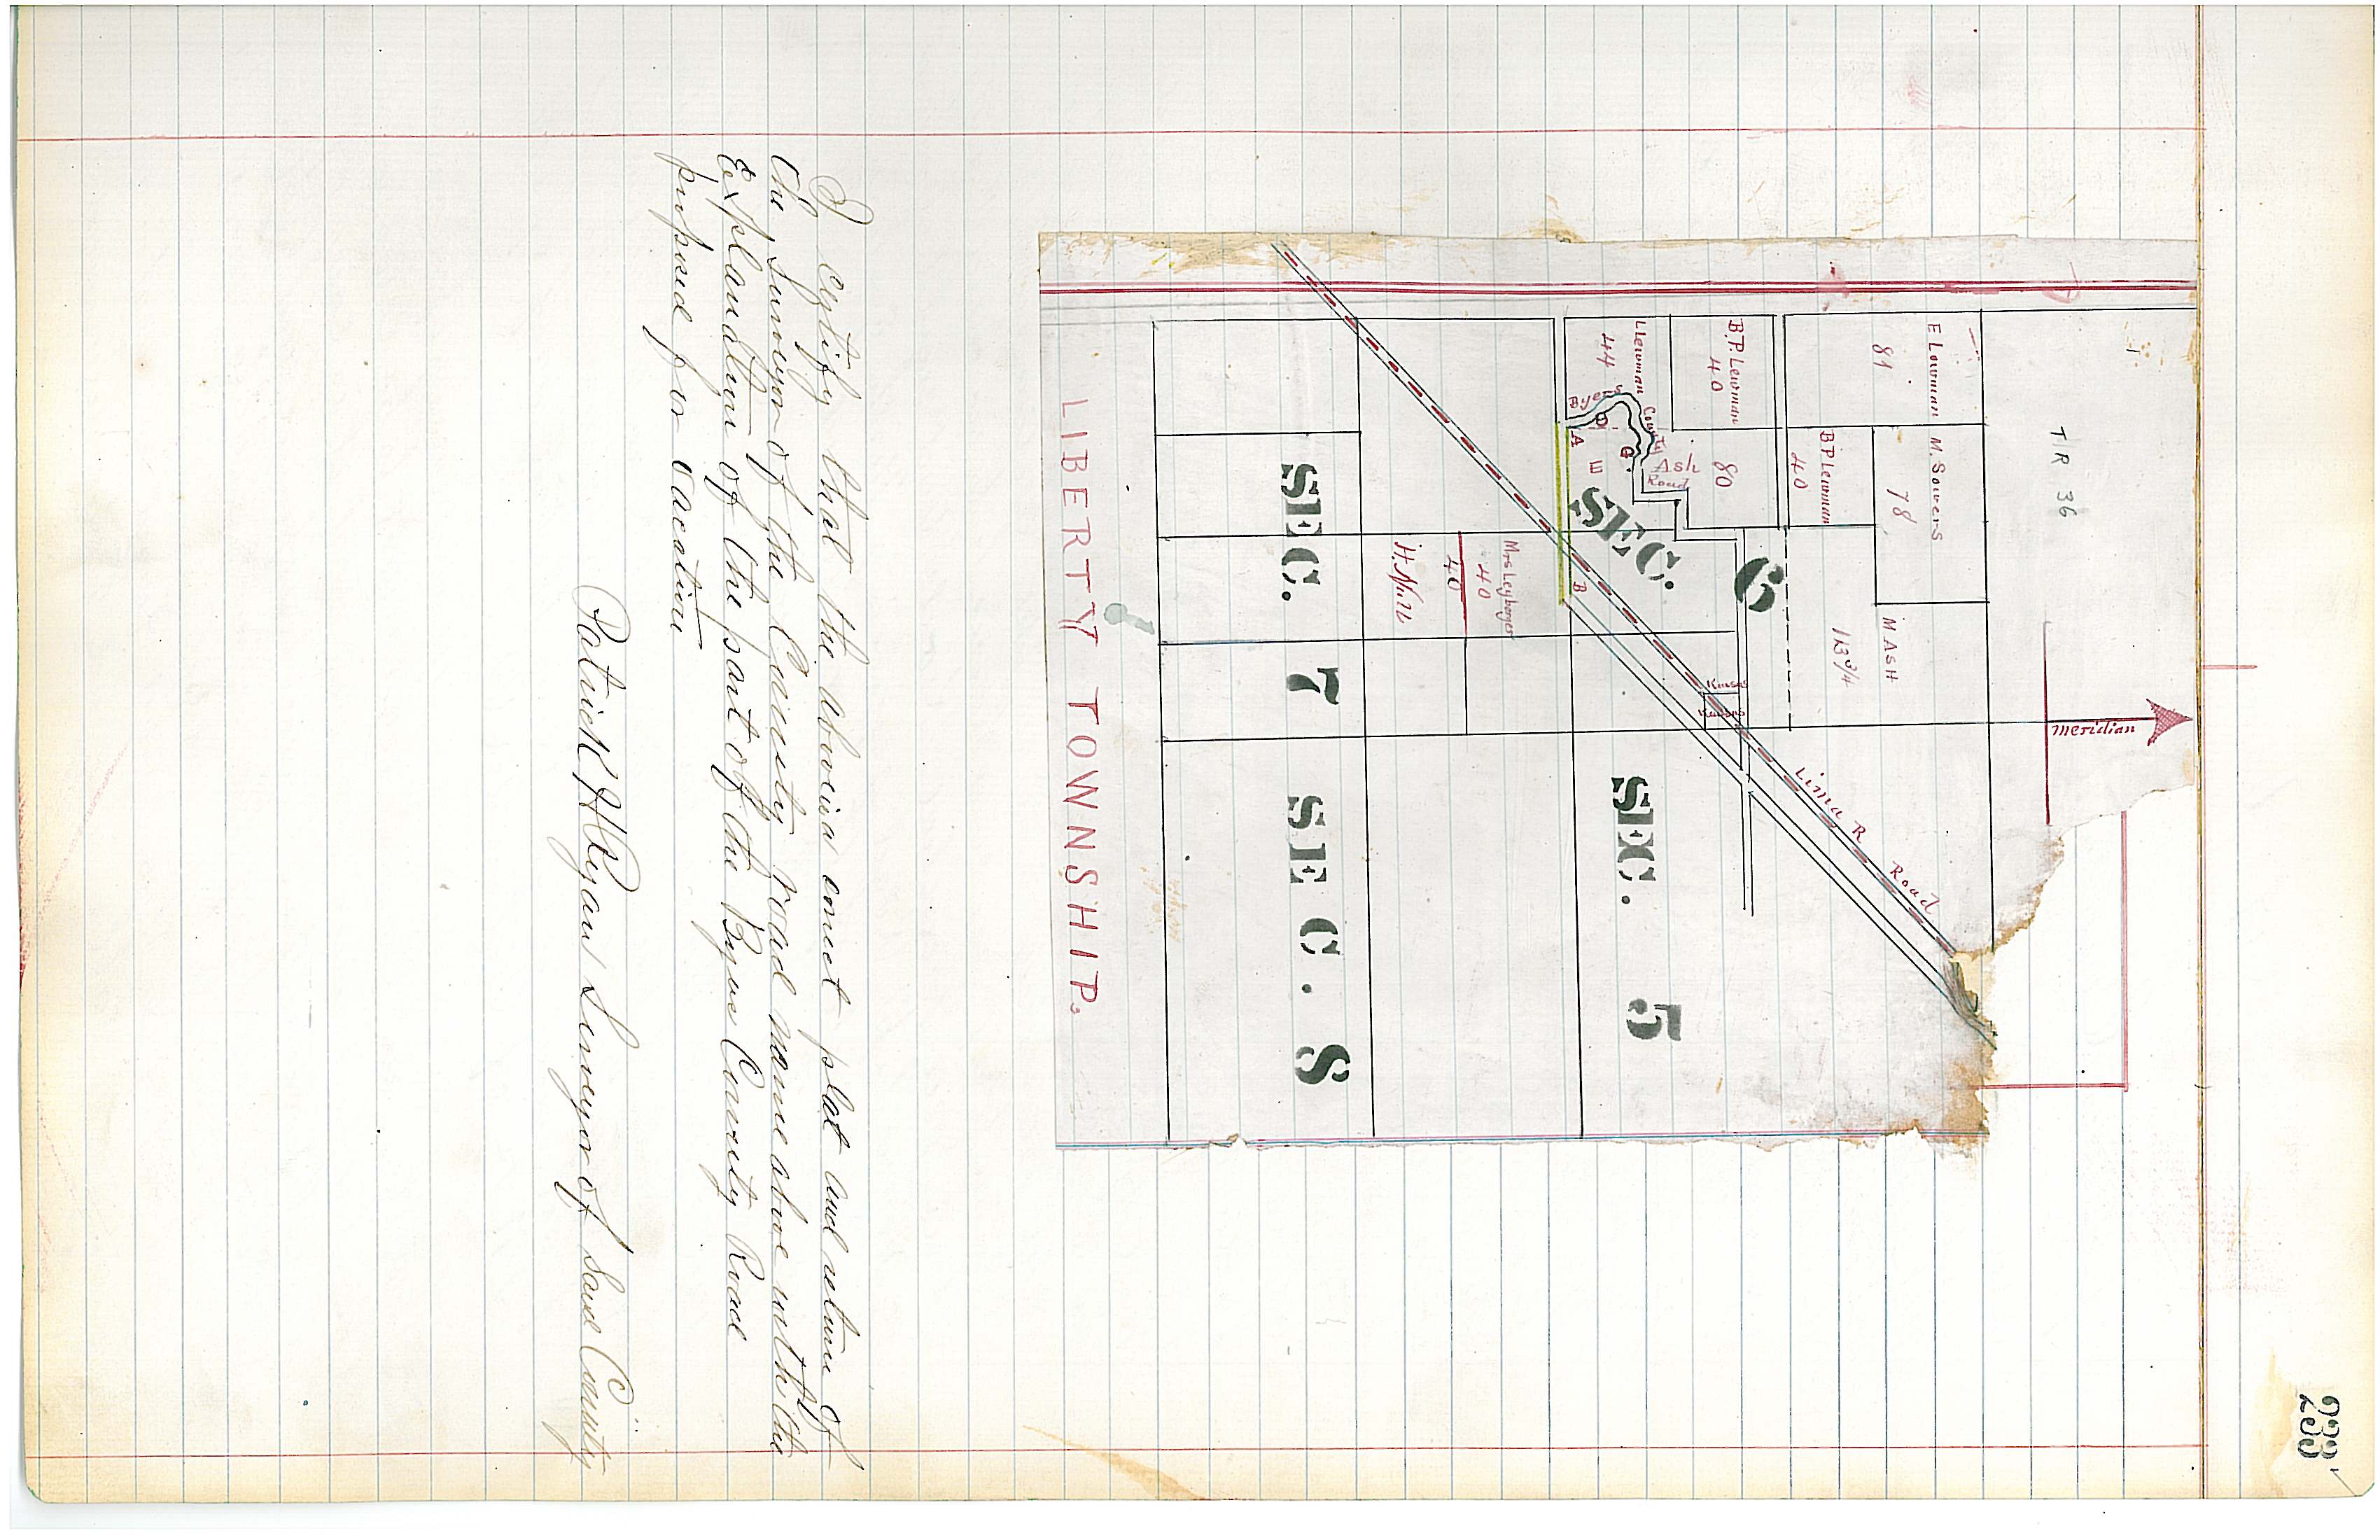 233
T R 36
Meridian
E Lowman
81
M. Sowers
78
M ASH
113 3/4
B.P. Lewman
40
B P Lewman
40
Llewman
44
80
Byers County Ash Road
D
C
A
E
B
SEC. 6
Lima R Road
SEC. 5
Mrs Leyberger
40
40
H. Null
SEC. 7
SEC. S
LIBERTY TOWNSHIP.
I certify that the above is a correct plat and return of
the Surveyor of the County road name above with the
Explanation of the part of the Byers County Road
purposed for vacation
Patrick H Ryan Surveyor of said County